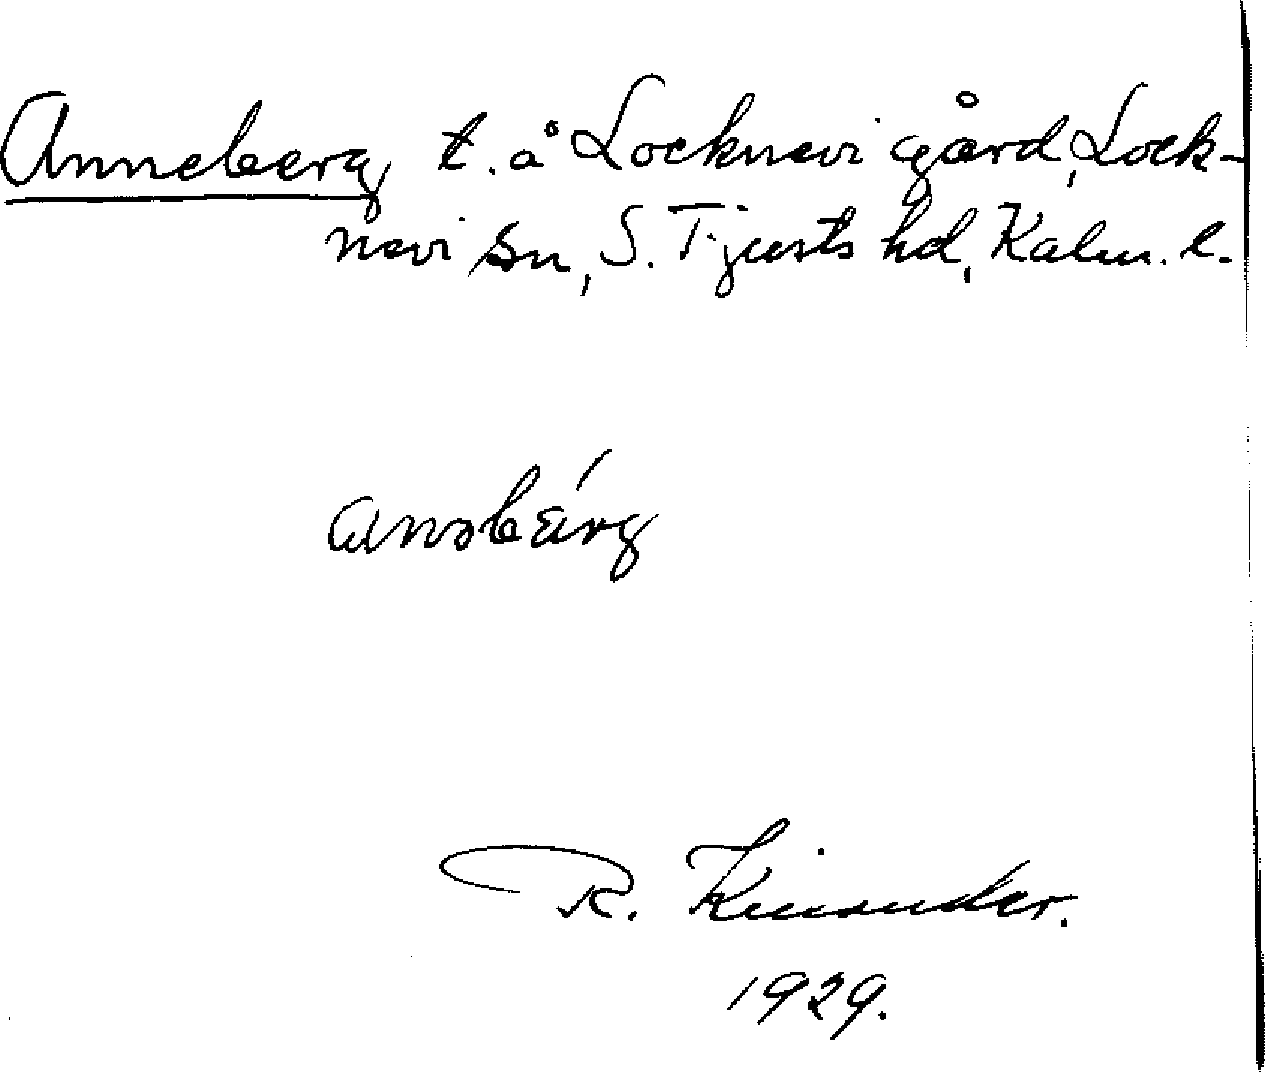 Anneberg t. å Locknevi gård, Lock-
nevi sn, S. Tjusts hd, Kalm. l.
anəbärg
R. Kinander.
1929.